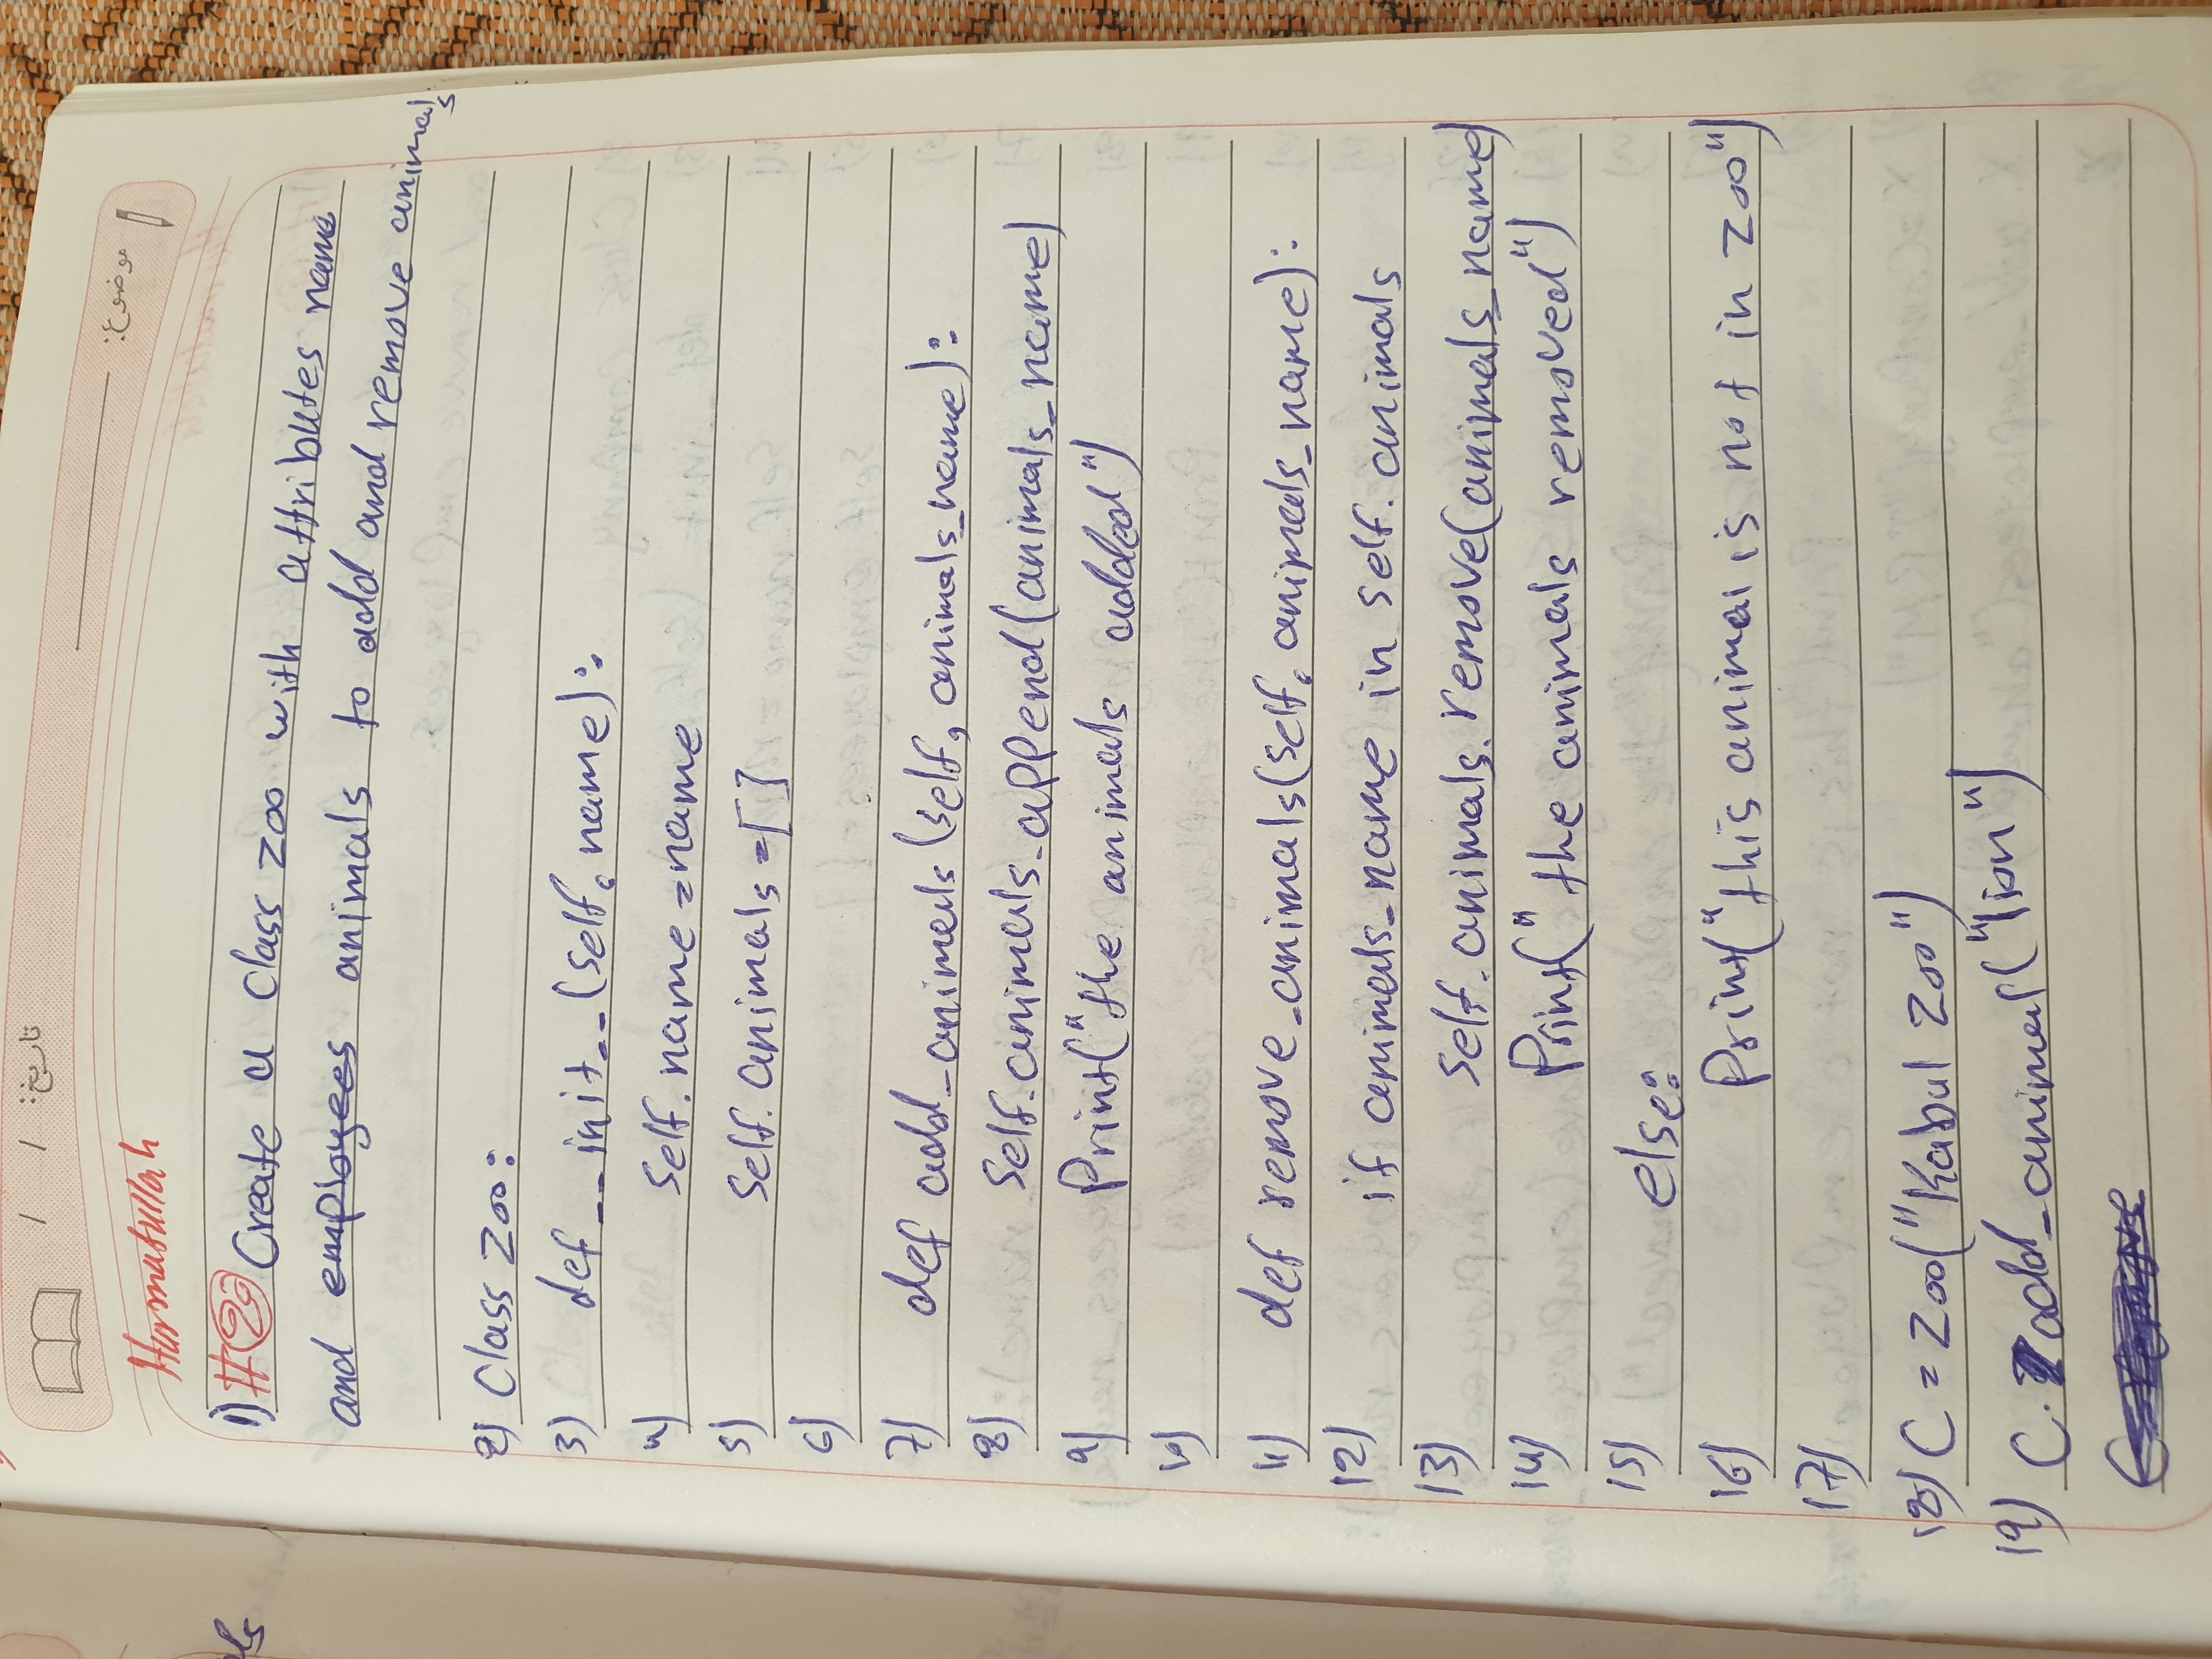 تاریخ: / /
موضوع:
Hurmatullah
1) #22 Create a class zoo with attributes name
and employees animals to add and remove animals
2) Class Zoo:
3) def __init__(self, name):
4) self.name = name
5) self.animals = []
6)
7) def add_animals(self, animals_name):
8) self.animals.append(animals_name)
9) Print("the animals added")
10)
11) def remove_animals(self, animals_name):
12) if animals_name in self.animals
13) self.animals.remove(animals_name)
14) Print("the animals removed")
15) else:
16) Print("this animal is not in zoo")
17)
18) C = Zoo("Kabul Zoo")
19) C. add_animal("lion")